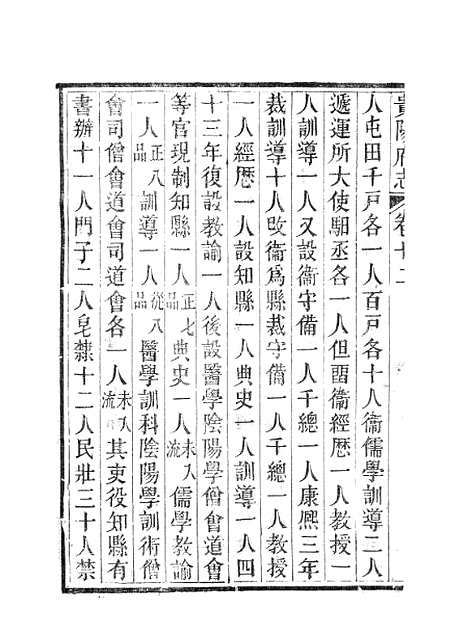 貴陽府志 卷十二
人屯田千戸各一人百戸各十人衞儒學訓導二人
遞運所大使驲丞各一人但畱衞經歴一人教授一
人訓導一人又設衞守備一人千總一人康熙三年
裁訓導十人改衞爲縣裁守備一人千總一人教授
一人經歴一人設知縣一人典史一人訓導一人四
十三年復設教諭一人後設醫學陰陽學僧會道會
等官現制知縣一人正七品典史一人未入流儒學教諭
一人正八品訓導一人從八品醫學訓科陰陽學訓術僧
會司僧會道會司道會各一人未入流其吏役知縣有
書辦十一人門子二人皂隸十二人民壯三十人禁